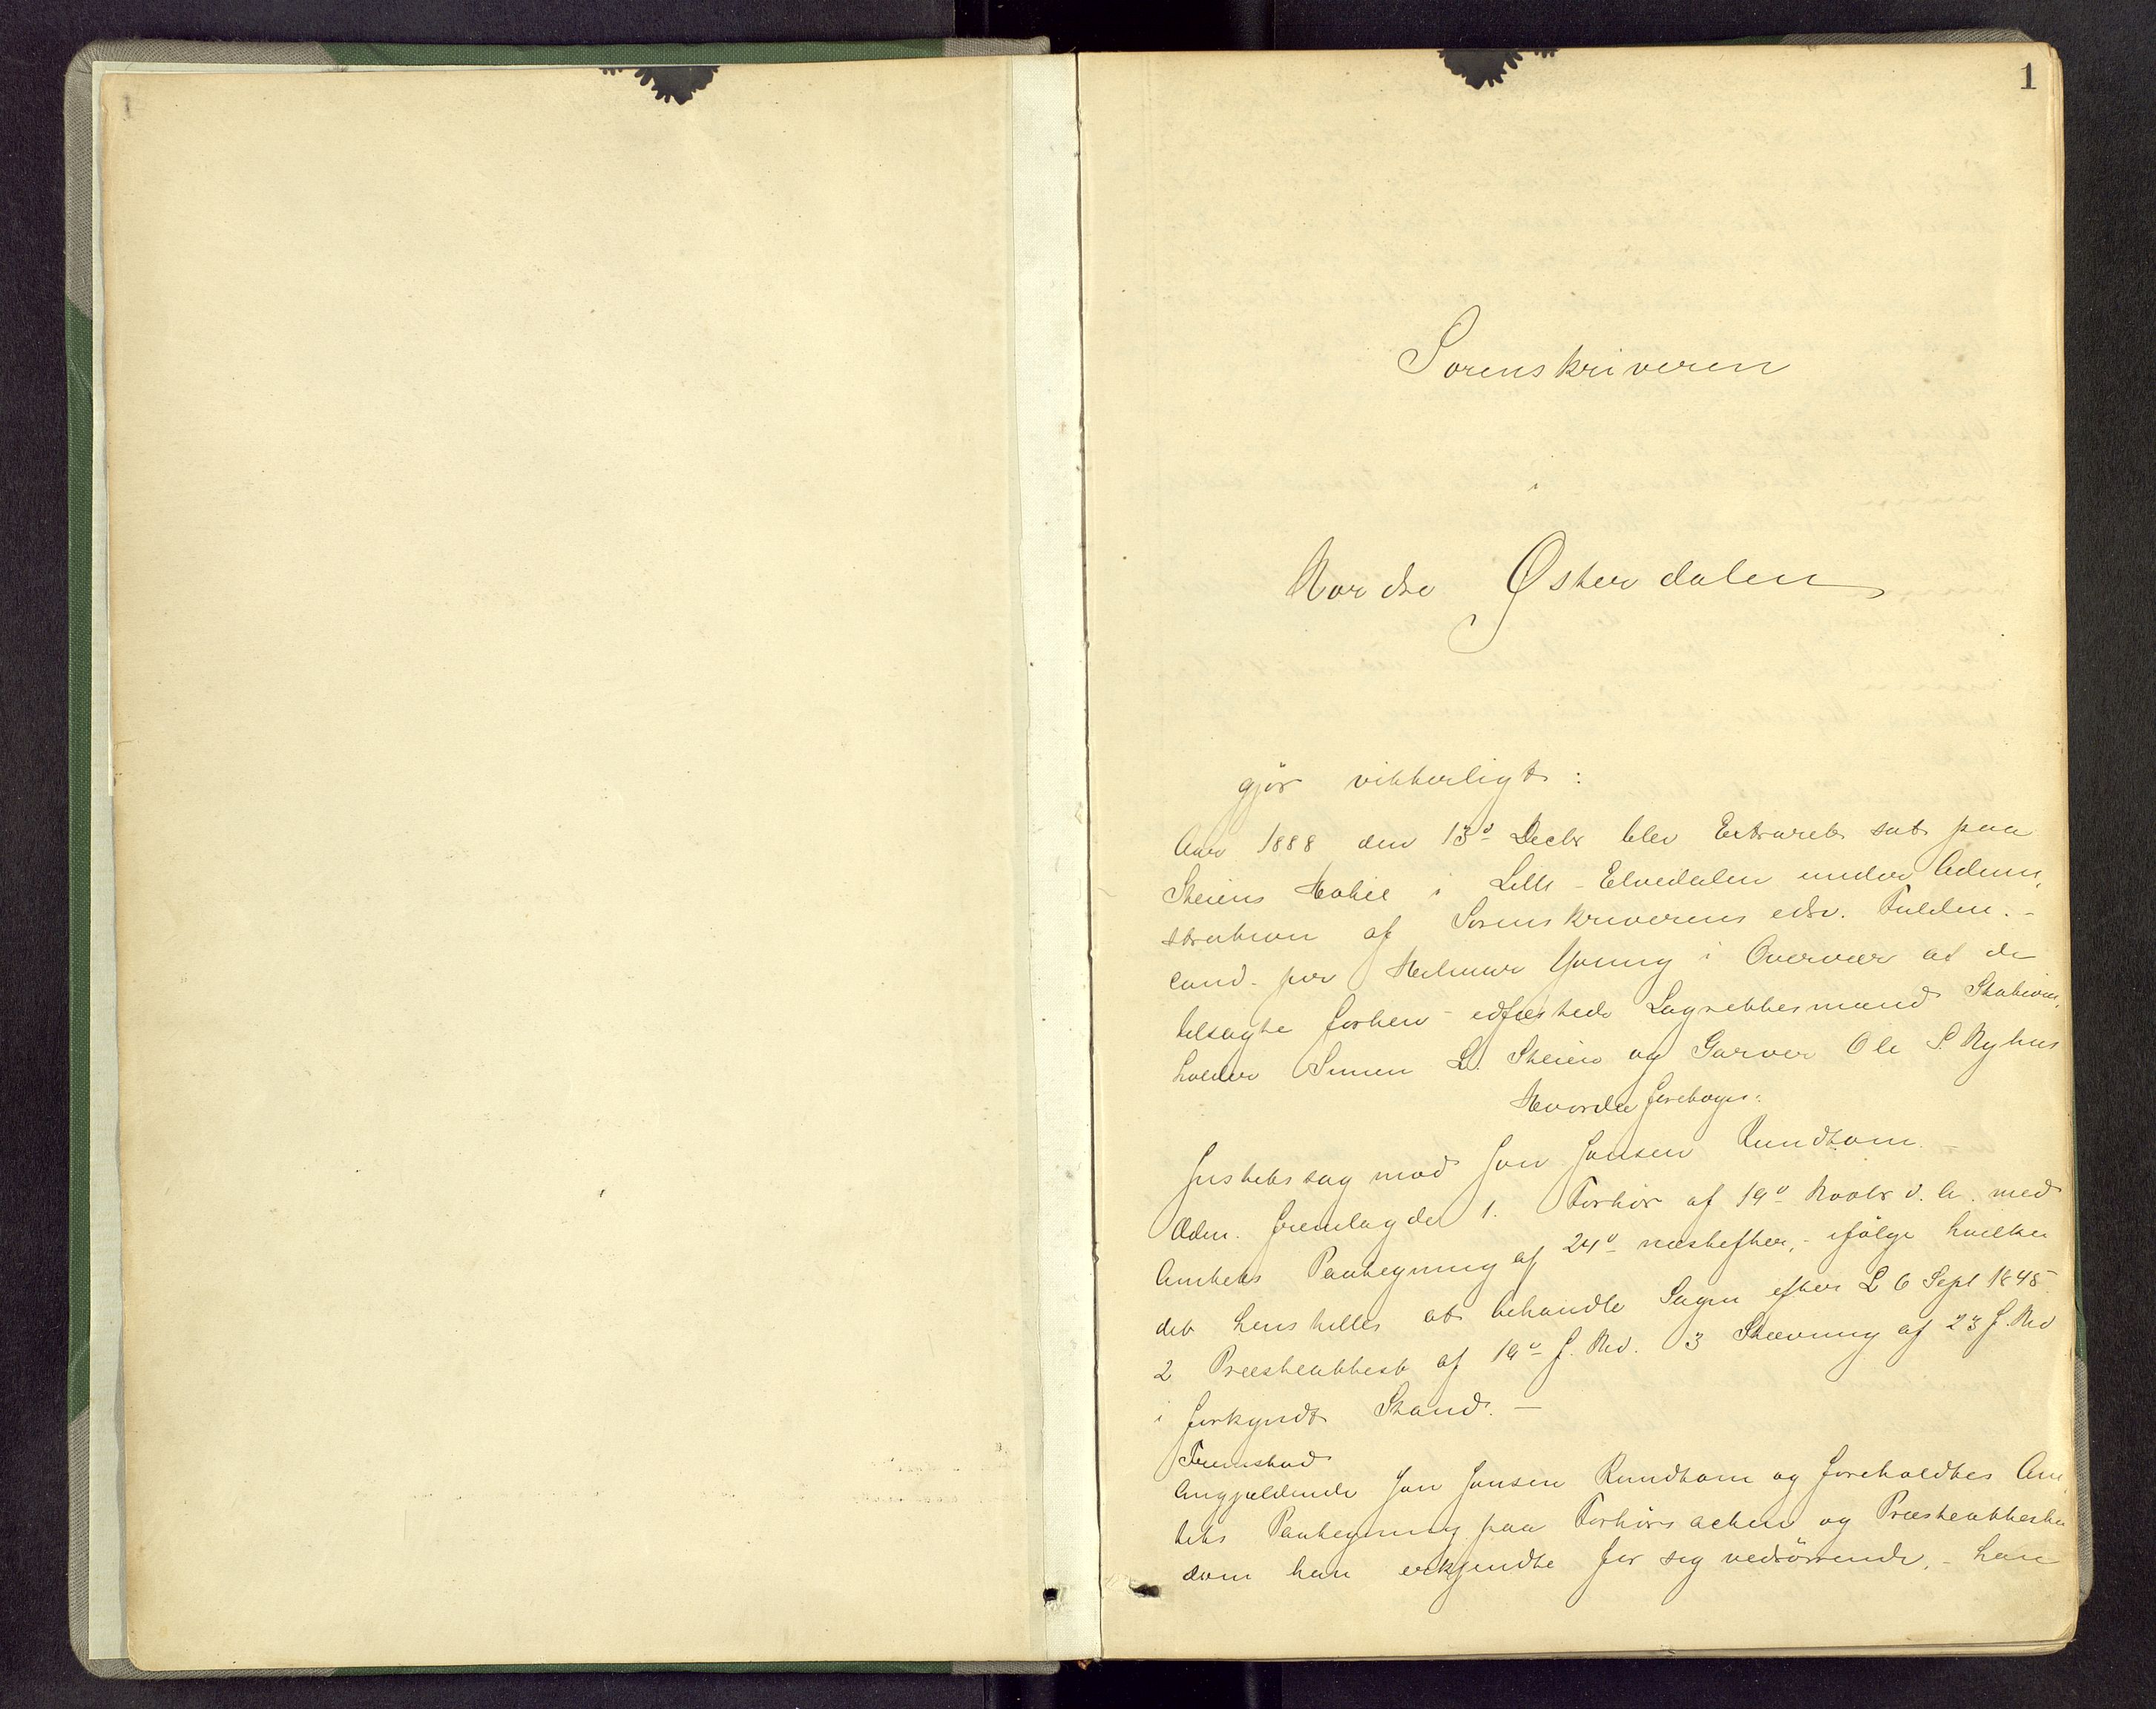 1
Sorenskriveren
i
Nordre Østerdalen
gjör vitterligt:
Aar 1888 den 13d Decbr blev Extraret sat paa
Steiens Hotel i Lille-Elvedalen under Admini
stration af Sorenskriverens edsv. Fuldm. -
cand. jur Hilmar Young i Overvær af de
tilsagte forhen edfæstede Lagrettesmænd Station,
holder Simen L. Steien og Garver Ole P. Ryhus
Hvorda foretoges:
Justitssag mod Jon Jonsen Rundtom. -
Adm. fremlagde 1. Forhör af 19d Novbr d. A. med
Amtets Paategning af 24d næstefter, - ifölge hvilken
det henstilles at behandle Sagen efter L 6 Sept 1845
2 Præsteattest af 19d f. Md. 3 Stævning af 23 f. Md
i forkyndt Stand. -
Fremstod
Angjældende Jon Jonsen Rundtom og foreholdtes Am
tets Paategning paa Forhörsacten og Præsteattesten
som han erkjendte for sig vedrörende, - han